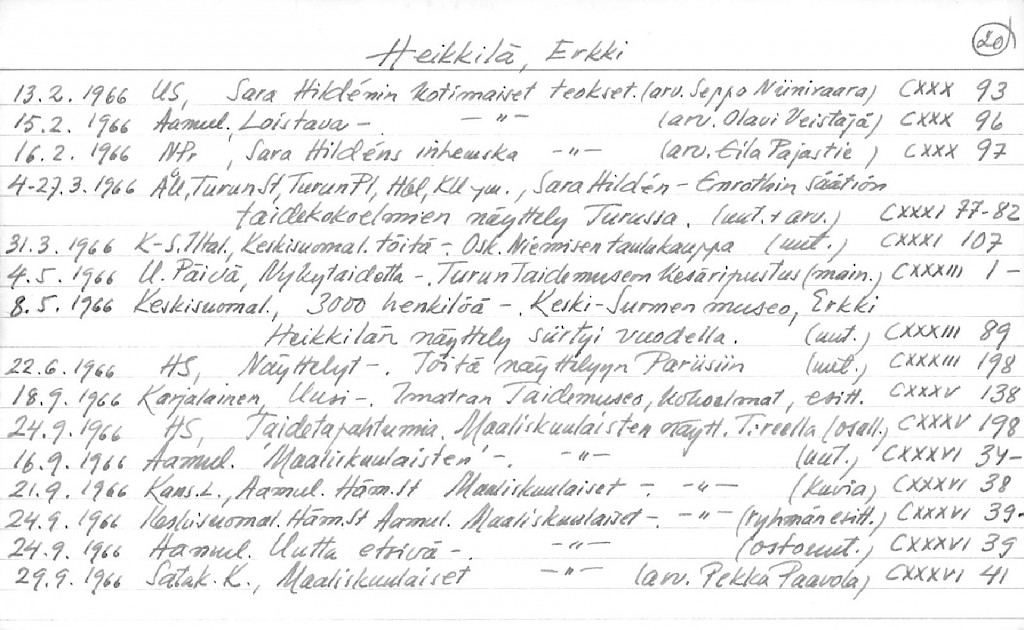 20
Heikkilä, Erkki
13.2.1966 US, Sara Hildénin kotimaiset teokset. (arv. Seppo Niiniraara) CXXX 93
15.2.1966 Aamul., Loistava - . - " - (arv. Olavi Veistäjä) CXXX 96
16.2.1966 NPr, Sara Hildéns inhemska - " - (arv. Eila Pajastie) CXXX 97
4-27.3.1966 ÅU, Turun St, Turun Pl, Hbl, KU ym., Sara Hildén - Enrothin säätiön
taidekokoelmien näyttely Turussa. (uut. + arv.) CXXXI 77-82
31.3.1966 K-S. Iltal., Keskisuomal. töitä -. Osk. Niemisen taulukauppa (uut.) CXXXI 107
4.5.1966 U. Päivä, Nykytaidetta -. Turun Taidemuseon kesäripustus (main.) CXXXIII 1 -
8.5.1966 Keskisuomal., 3000 henkilöä -. Keski-Suomen museo, Erkki
Heikkilän näyttely siirtyi vuodella. (uut.) CXXXIII 89
22.6.1966 HS, Näyttelyt -. Töitä näyttelyyn Pariisiin (uut.) CXXXIII 198
18.9.1966 Karjalainen, Uusi -. Imatran Taidemuseo, kokoelmat, esitt. CXXXV 138
24.9.1966 HS, Taidetapahtumia. Maaliskuulaisten näytt. T:reella (osall.) CXXXV 198
16.9.1966 Aamul. 'Maaliskuulaisten' -. - " - (uut.) CXXXVI 34-
21.9.1966 Kans.L., Aamul. Häm.St Maaliskuulaiset -. - " - (kuvia) CXXXVI 38
24.9.1966 Keskisuomal. Häm.St Aamul. Maaliskuulaiset -. - " - (ryhmän esitt.) CXXXVI 39-
24.9.1966 Hamul. Uutta etsivä -. - " - (ostouut.) CXXXVI 39
29.9.1966 Satak. K., Maaliskuulaiset - " - (arv. Pekka Paavola) CXXXVI 41